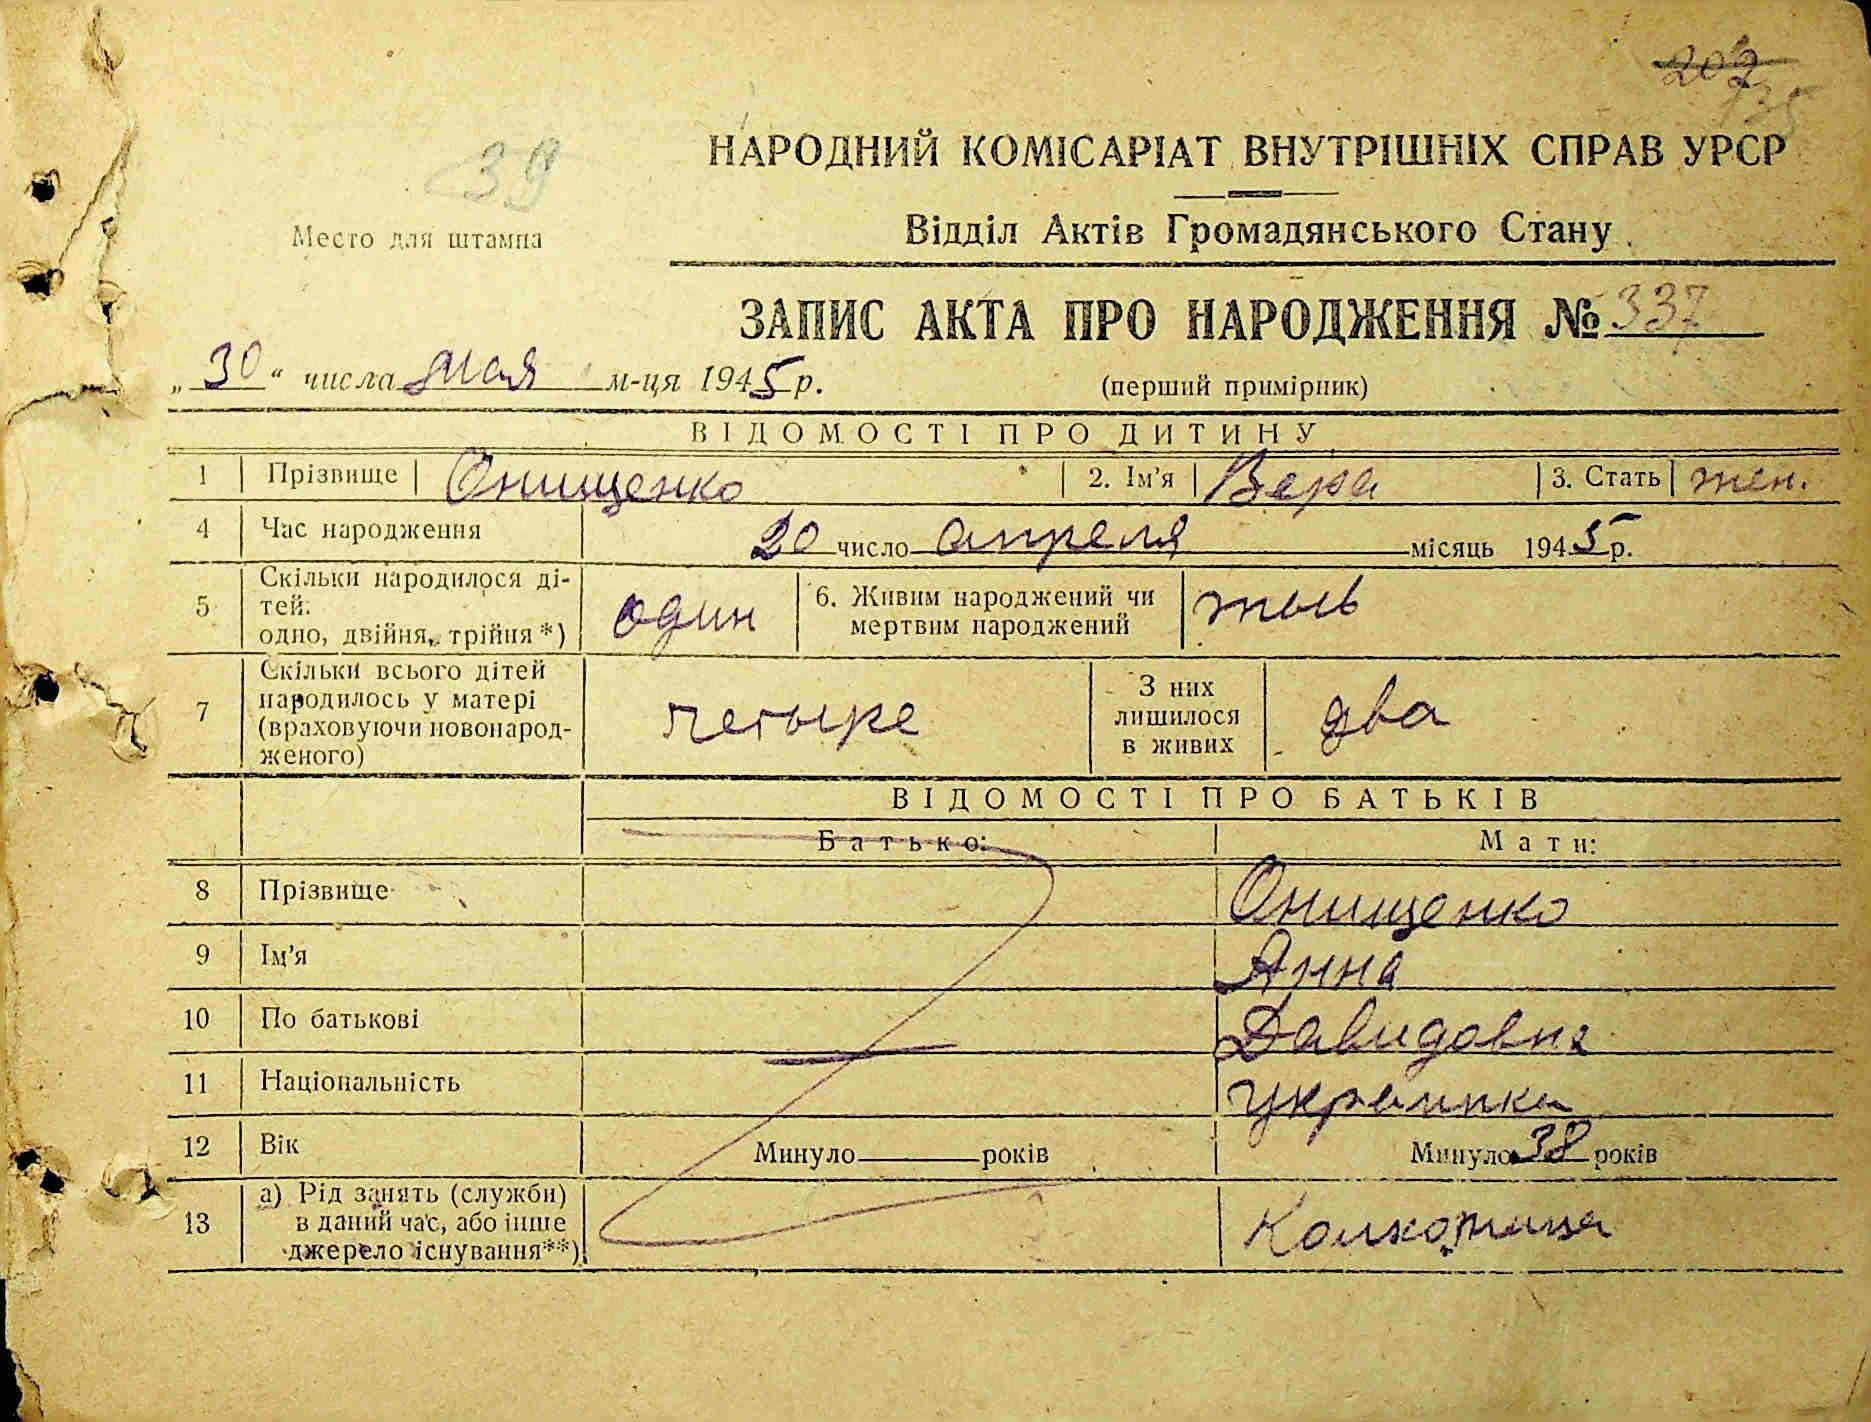 202
135
39
НАРОДНИЙ КОМІСАРІАТ ВНУТРІШНІХ СПРАВ УРСР
Место для штампа
Відділ Актів Громадянського Стану
ЗАПИС АКТА ПРО НАРОДЖЕННЯ № 337
„30“ числа мая м-ця 1945 р.
(перший примірник)
ВІДОМОСТІ ПРО ДИТИНУ
1 Прізвище Онищенко 2. Ім'я Вера 3. Стать жен.
4 Час народження 20 число апреля місяць 1945 р.
5 Скільки народилося ді-
тей:
одно, двійня, трійня*) один
6. Живим народжений чи
мертвим народжений
7 Скільки всього дітей
народилось у матері
(враховуючи новонарод-
женого) четыре
З них
лишилося
в живих два
ВІДОМОСТІ ПРО БАТЬКІВ
Батько: Мати:
8 Прізвище Онищенко
9 Ім'я Анна
10 По батькові Давидовна
11 Національність украинка
12 Вік Минуло років Минуло 38 років
13 а) Рід занять (служби)
в даний час, або інше
джерело існування**)
Колхозница